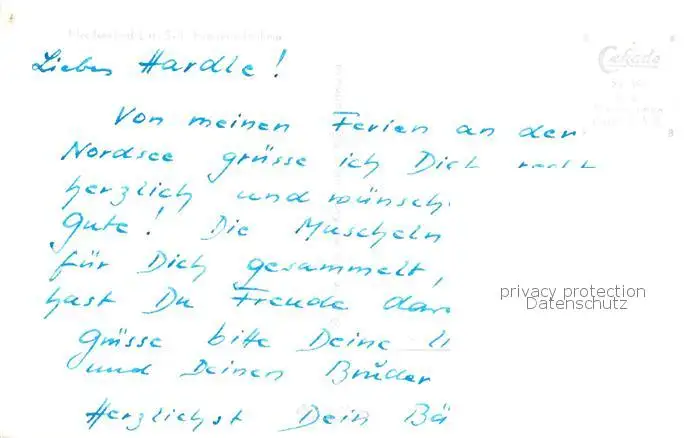 Lieber Hardle!
Von meinen Ferien an der
Nordsee grüsse ich Dich recht
herzlich und wünsch
Gute! Die Muscheln
für Dich gesammelt,
hast Du Freude dar
Grüsse bitte Deine
und Deinen Bruder
Herzlichst Dein Bä
Cekade
privacy protection
Datenschutz